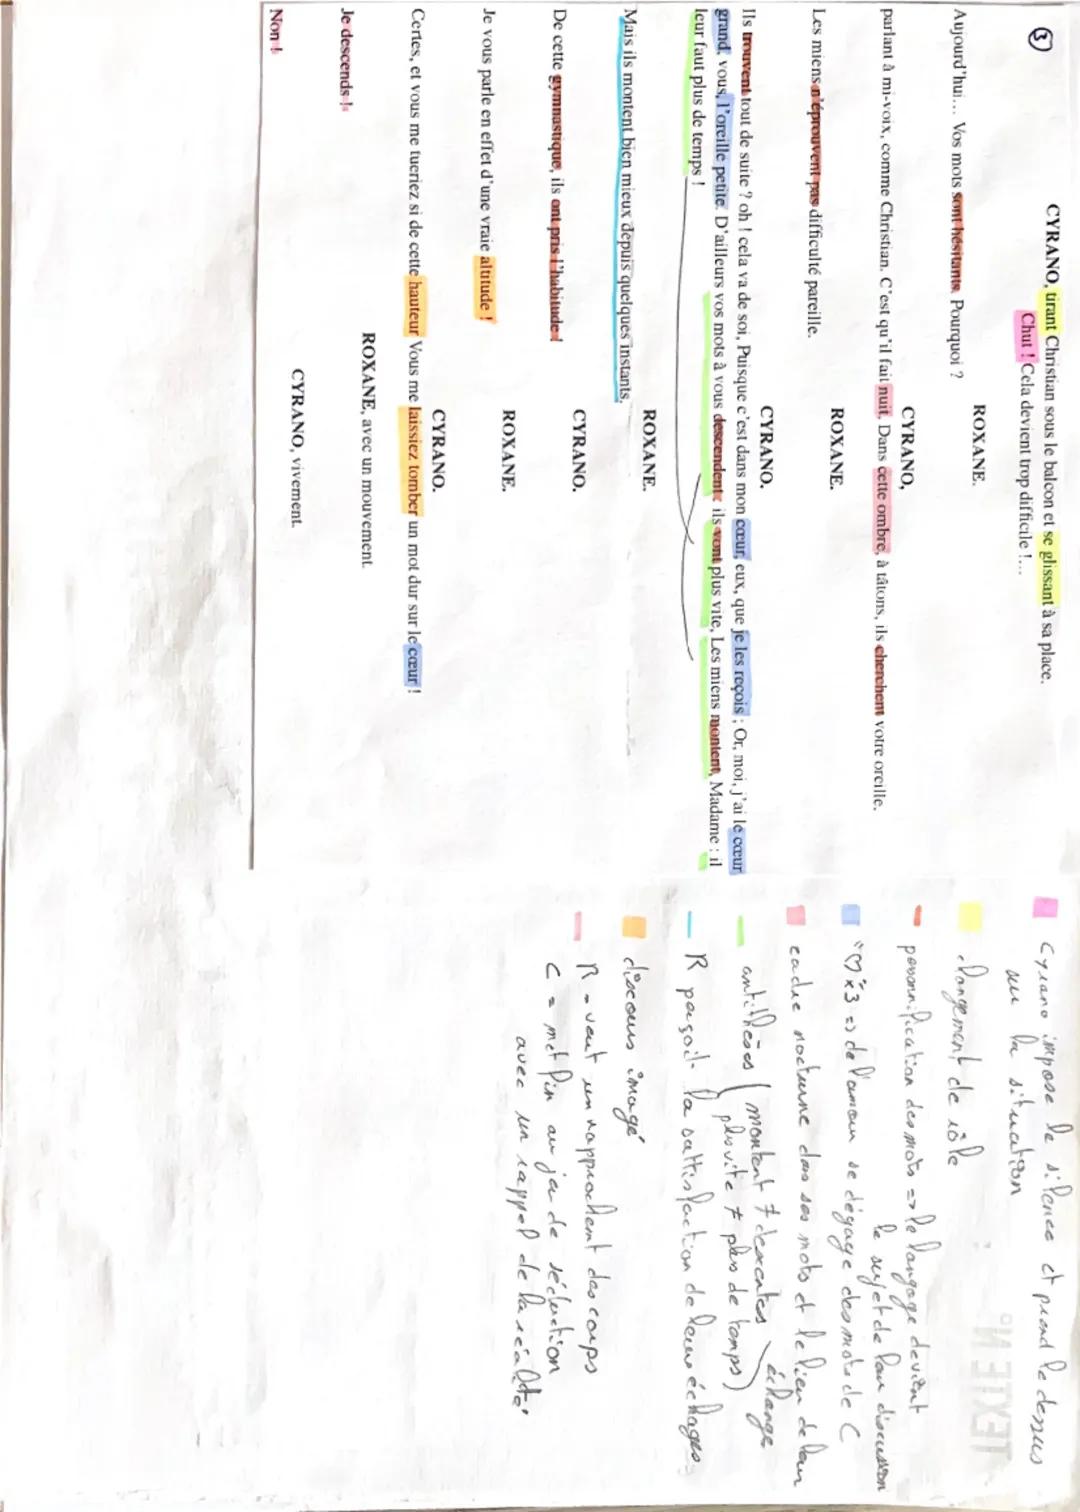 ③
CYRANO, tirant Christian sous le balcon et se glissant à sa place.
Chut ! Cela devient trop difficile !...
ROXANE.
Aujourd'hui... Vos mots sont hésitants. Pourquoi ?
CYRANO,
parlant à mi-voix, comme Christian. C'est qu'il fait nuit, Dans cette ombre, à tâtons, ils cherchent votre oreille.
ROXANE.
Les miens n'éprouvent pas difficulté pareille.
CYRANO.
Ils trouvent tout de suite ? oh ! cela va de soi, Puisque c'est dans mon cœur, eux, que je les reçois ; Or, moi, j'ai le cœur
grand, vous, l'oreille petite. D'ailleurs vos mots à vous descendent : ils vont plus vite, Les miens montent, Madame : il
leur faut plus de temps !
ROXANE.
Mais ils montent bien mieux depuis quelques instants.
CYRANO.
De cette gymnastique, ils ont pris l'habitude !
ROXANE.
Je vous parle en effet d'une vraie altitude !
CYRANO.
Certes, et vous me tueriez si de cette hauteur Vous me laissiez tomber un mot dur sur le cœur !
ROXANE, avec un mouvement.
Je descends !
CYRANO, vivement.
Non !
Cyrano impose le silence et prend le dessus
sur la situation
changement de rôle
personnification des mots => le langage devient
le sujet de leur discussion
"♡" x3 => de l'amour se dégage des mots de C
cadre nocturne dans ses mots et le lieu de leur
échange
antithèses ( montent ≠ descentes
plus vite ≠ plus de temps )
R perçoit la sattisfaction de leurs échages
discours imagé
R = veut un rapprochent des corps
C = met fin au jeu de séduction
avec un rappel de la réalité
TEXTE N° :